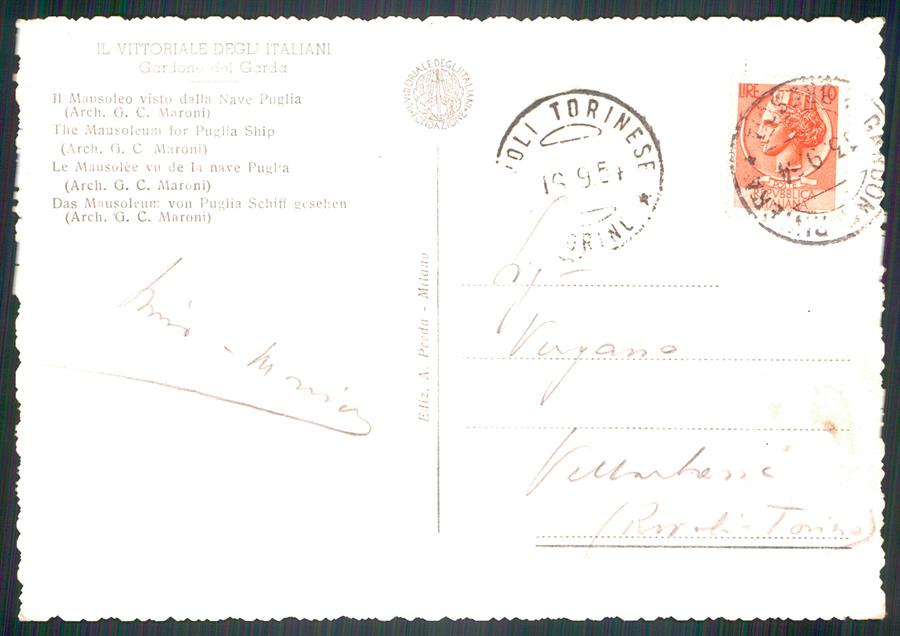 IL VITTORIALE DEGLI ITALIANI
Gardone del Garda
Il Mausoleo visto dalla Nave Puglia
(Arch. G. C. Maroni)
The Mausoleum for Puglia Ship
(Arch. G. C. Maroni)
Le Mausolèe vu de la nave Puglia
(Arch. G. C. Maroni)
Das Mausoleum von Puglia Schiff gesehen
(Arch. G. C. Maroni)
VITTORIALE DEGL'ITALIANI
FONDAZIONE
OLI TORINESE
9.54
TORINO
LIRE 10
REPUBBLICA
ITALIANA
GARDON
RIVIERA
Ediz. A. Preda - Milano
Vergano
Villarbasse
(Rivoli-Torino)